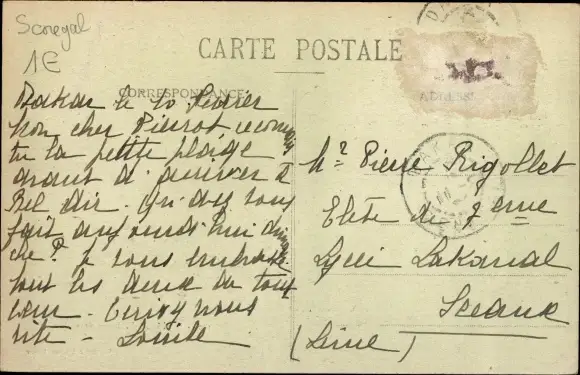 Senegal
1E
CARTE POSTALE
CORRESPONDANCE
ADRESSE
Dakar le 10 Février
Mon cher Pierrot reconnais
tu la petite plage
avant d'arriver à
Bel Air. Qu'as tu
fait aujourd'hui diman
che? Je vous embrasse
tous les deux de tout
cœur. Ecrivez nous
vite - Louise
Mr Pierre Rigollet
Elève de 7eme
Lycée Lakanal
Sceaux
(Seine)
DAKAR